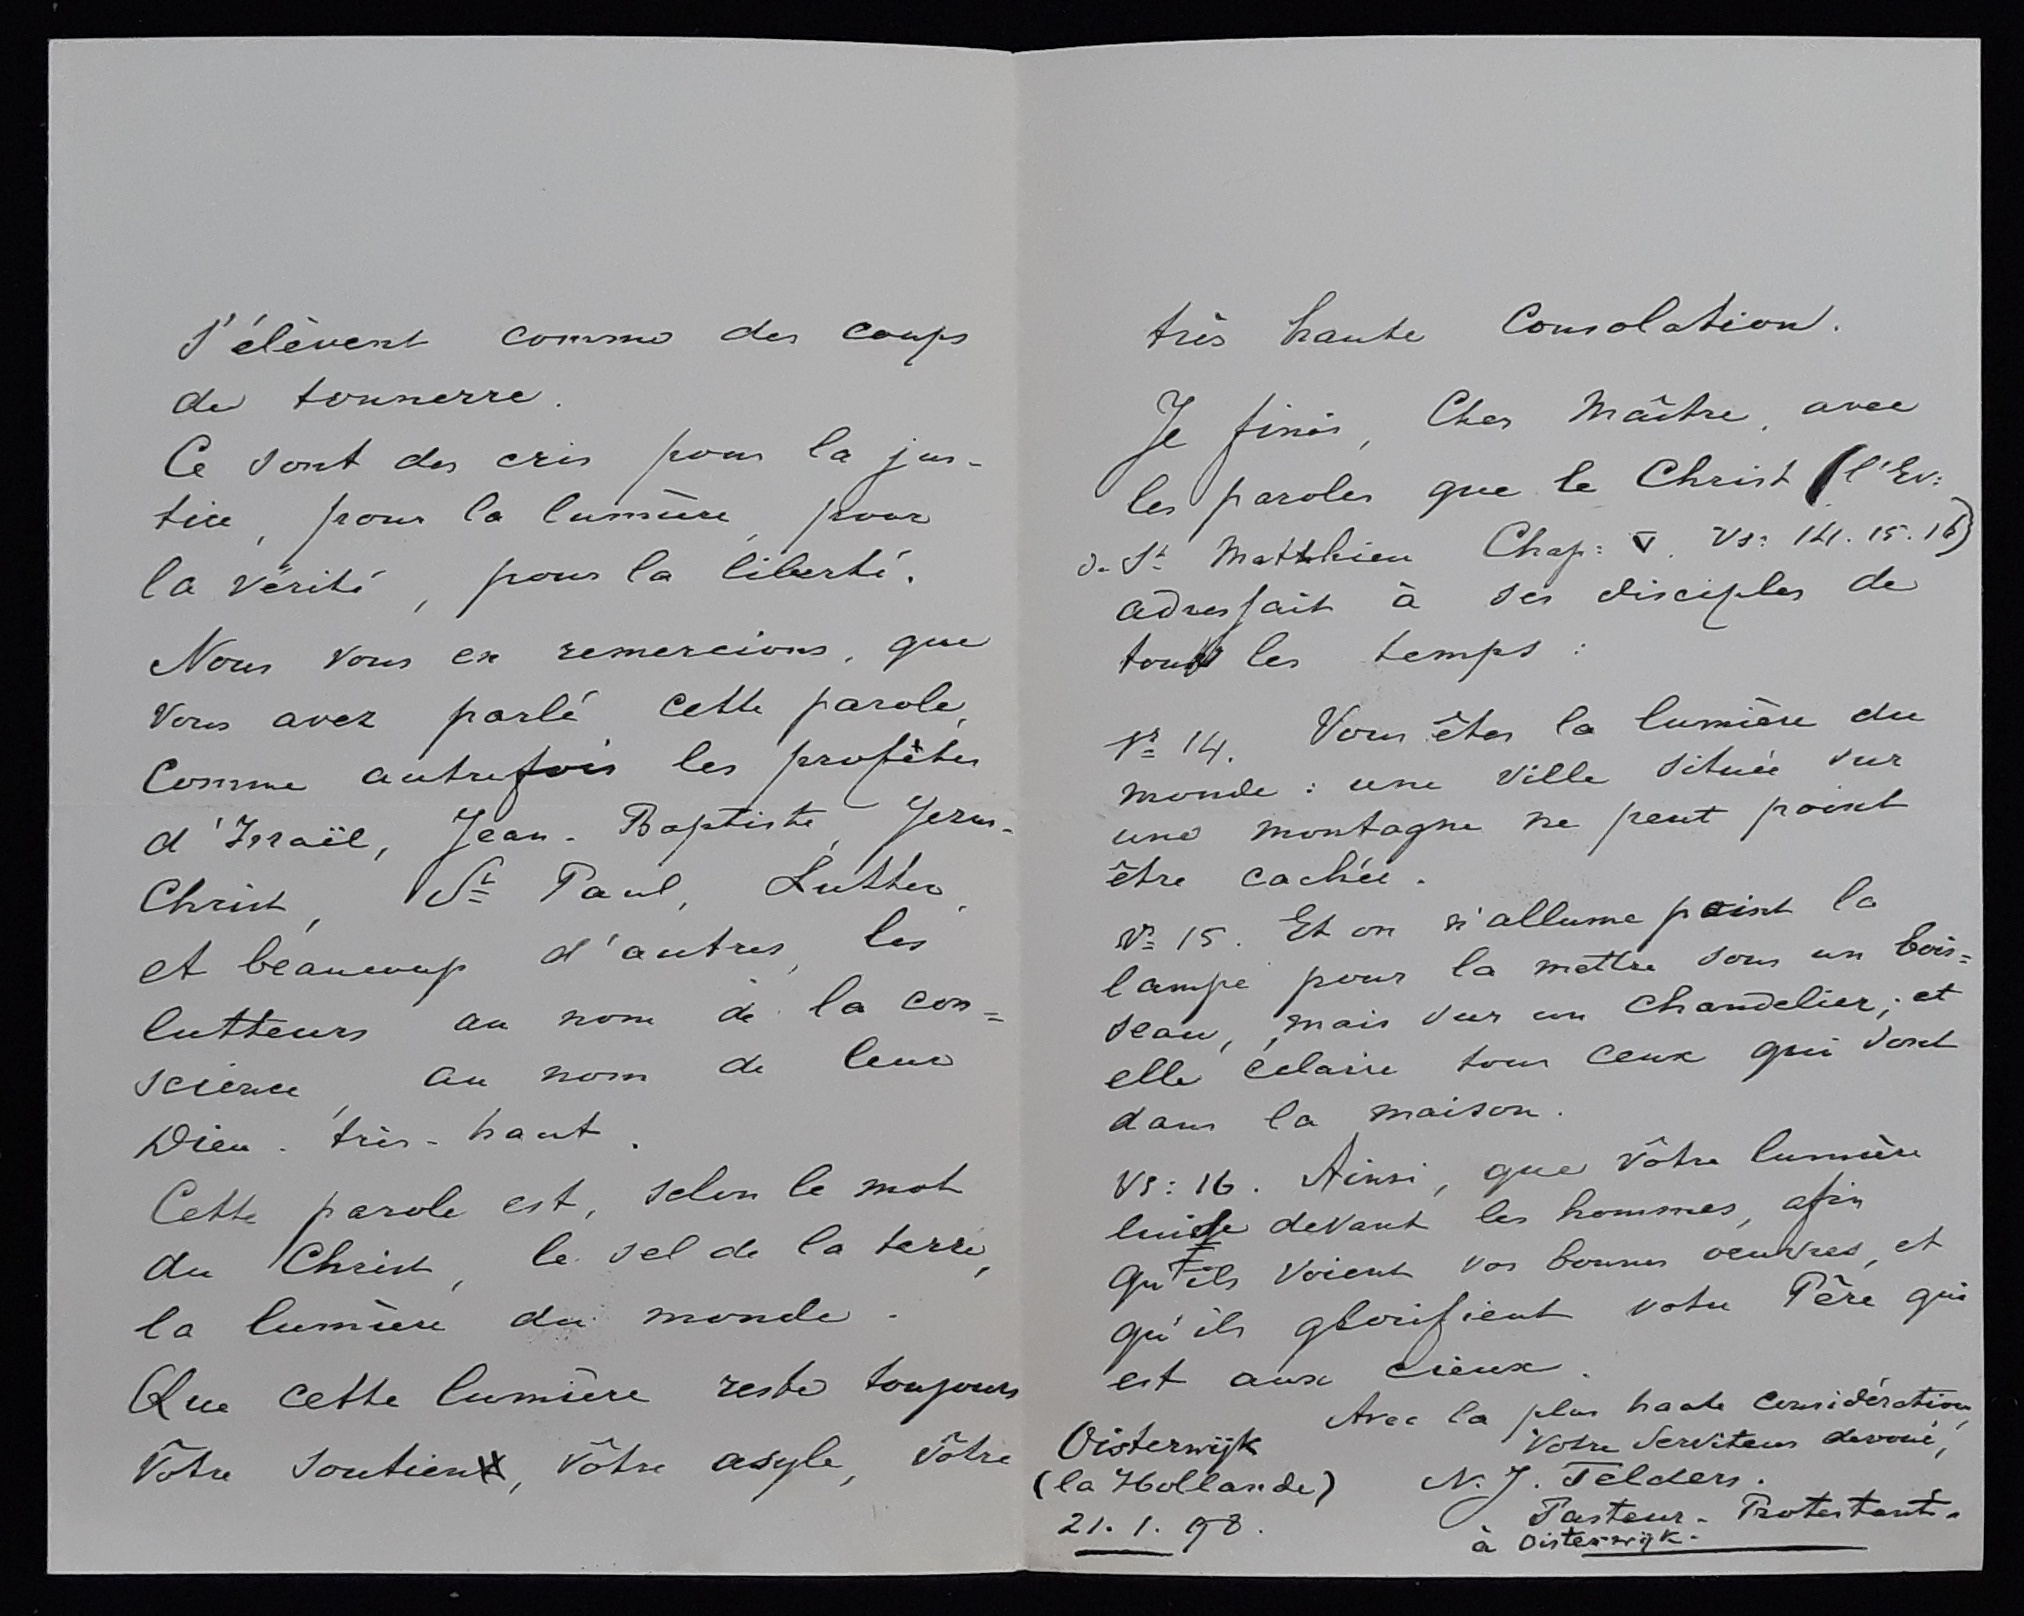 s'élèvent comme des coups
de tonnerre.
Ce sont des cris pour la jus-
tice, pour la lumière, pour
la vérité, pour la liberté.
Nous vous en remercions, que
vous avez parlé cette parole,
comme autrefois les profètes
d'Israël, Jean-Baptiste, Jezus-
Christ, St Paul, Luther,
et beaucoup d'autres, les
lutteurs au nom de la con=
science, au nom de leur
Dieu-très-haut.
Cette parole est, selon le mot
du Christ, le sel de la terre,
la lumière du monde.
Que cette lumière reste toujours
vôtre soutien, vôtre asyle, vôtre
très haute Consolation.
Je finis, Cher Maître, avec
les paroles que le Christ (l'Ev:
d. St Matthieu Chap: V. Vs: 14. 15. 16)
adressait à ses disciples de
tous les temps:
Vs 14. Vous êtes la lumière du
monde: une ville située sur
une montagne ne peut point
être cachée.
Vs 15. Et on n'allume point la
lampe pour la mettre sous un bois=
seau, mais sur un chandelier; et
elle éclaire tous ceux qui sont
dans la maison.
Vs: 16. Ainsi, que vôtre lumière
luise devant les hommes, afin
qu'ils voient vos bonnes oeuvres, et
qu'ils glorifient votre Père qui
est aux cieux.
Avec la plus haute considération,
Votre Serviteur devoué,
N. J. Felders.
Pasteur-Protestant.
à Oisterwijk.
Oisterwijk
(la Hollande)
21. 1. 98.